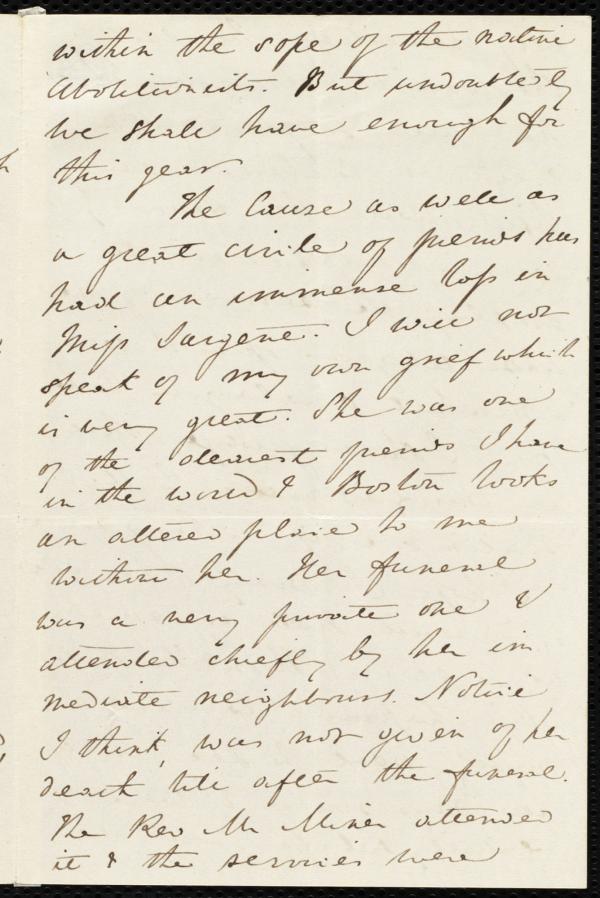 within the sope of the native
Abolitionists. But undoubtedly
we shall have enough for
this year.
The Cause as well as
a great circle of friends has
had an immense loss in
Miss Sargent. I will not
speak of my own grief which
is very great. She was one
of the dearest friends I have
in the world & Boston looks
an altered place to me
without her. Her funeral
was a very private one &
attended chiefly by her im
mediate neighbours. Notice
I think, was not given of her
death till after the funeral.
The Rev Mr Miner attended
it & the services were